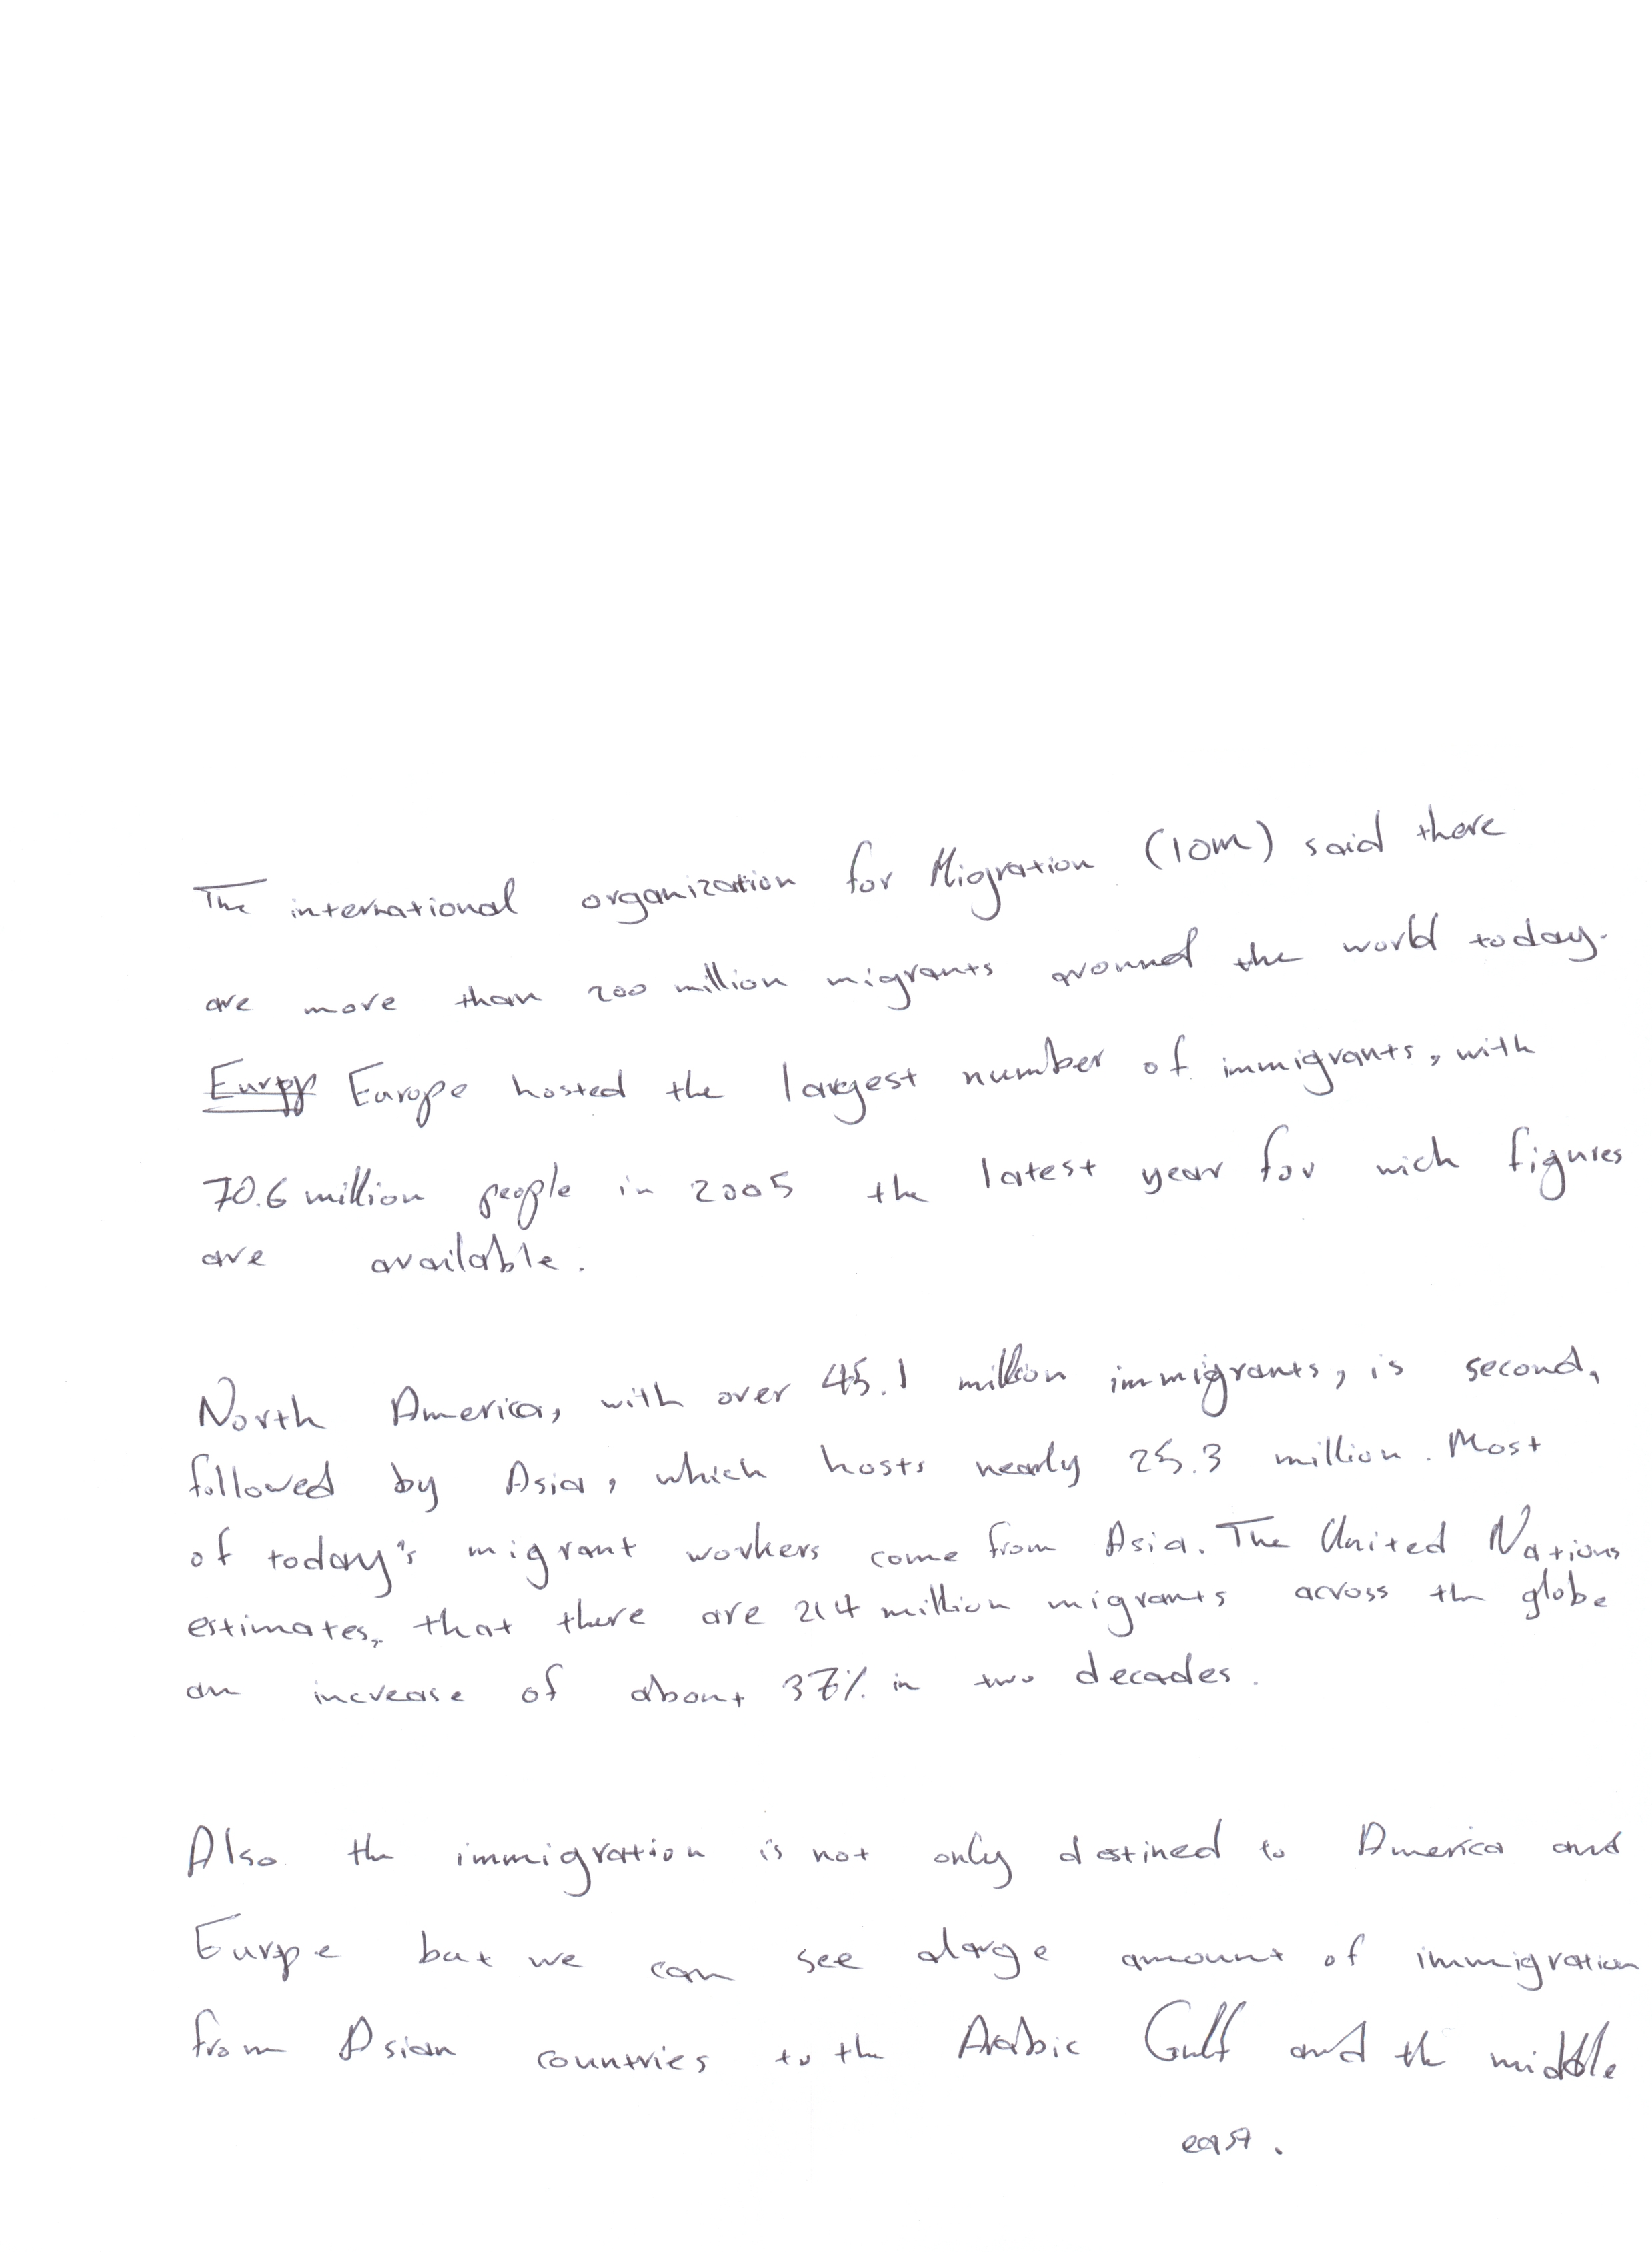 The international organization for Migration (IOM) said there
are more than 200 million migrants around the world today.
Europe hosted the largest number of immigrants, with
70.6 million people in 2005 the latest year for wich figures
are available.
North America, with over 45.1 million immigrants, is second,
followed by Asia, which hosts nearly 25.3 million. Most
of today's migrant workers come from Asia. The United Nations
estimates, that there are 214 million migrants across the globe
an increase of about 37% in two decades.
Also the immigration is not only destined to America and
Europe but we can see alarge amount of immigration
from Asian countries to the Arabic Gulf and the middle
east.